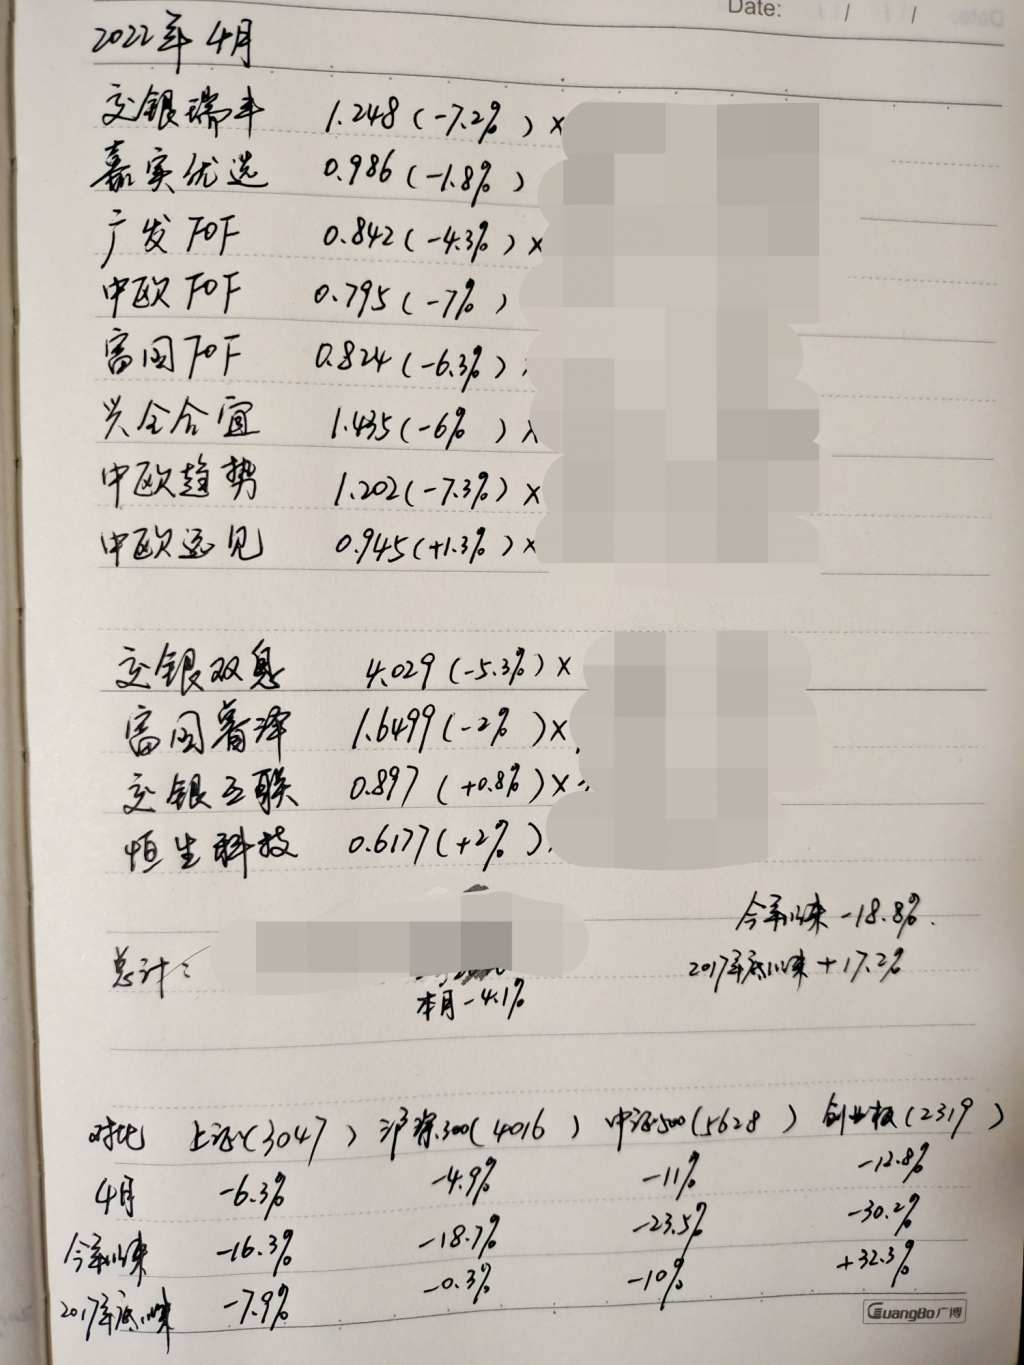 Date: / /
2022年4月
交银瑞丰 1.248(-7.2%)×
嘉实优选 0.986(-1.8%)
广发FOF 0.842(-4.3%)×
中欧FOF 0.795(-7%)
富国FOF 0.824(-6.3%)
兴全合宜 1.435(-6%)
中欧趋势 1.202(-7.3%)×
中欧远见 0.945(+1.3%)×
交银双息 4.029(-5.3%)×
富国 1.6499(-2%)×
交银互联 0.897(+0.8%)×
恒生科技 0.6177(+2%)
今年以来 -18.8%.
总计: 2017年底以来 +17.2%
本月-4.1%
对比 上证(3047) 沪深300(4016) 中证500(5628) 创业板(2319)
4月 -6.3% -4.9% -11% -12.8%
今年以来 -16.3% -18.7% -23.5% -30.2%
2017年底以来 -7.9% -0.3% -10% +32.3%
GuangBo广博